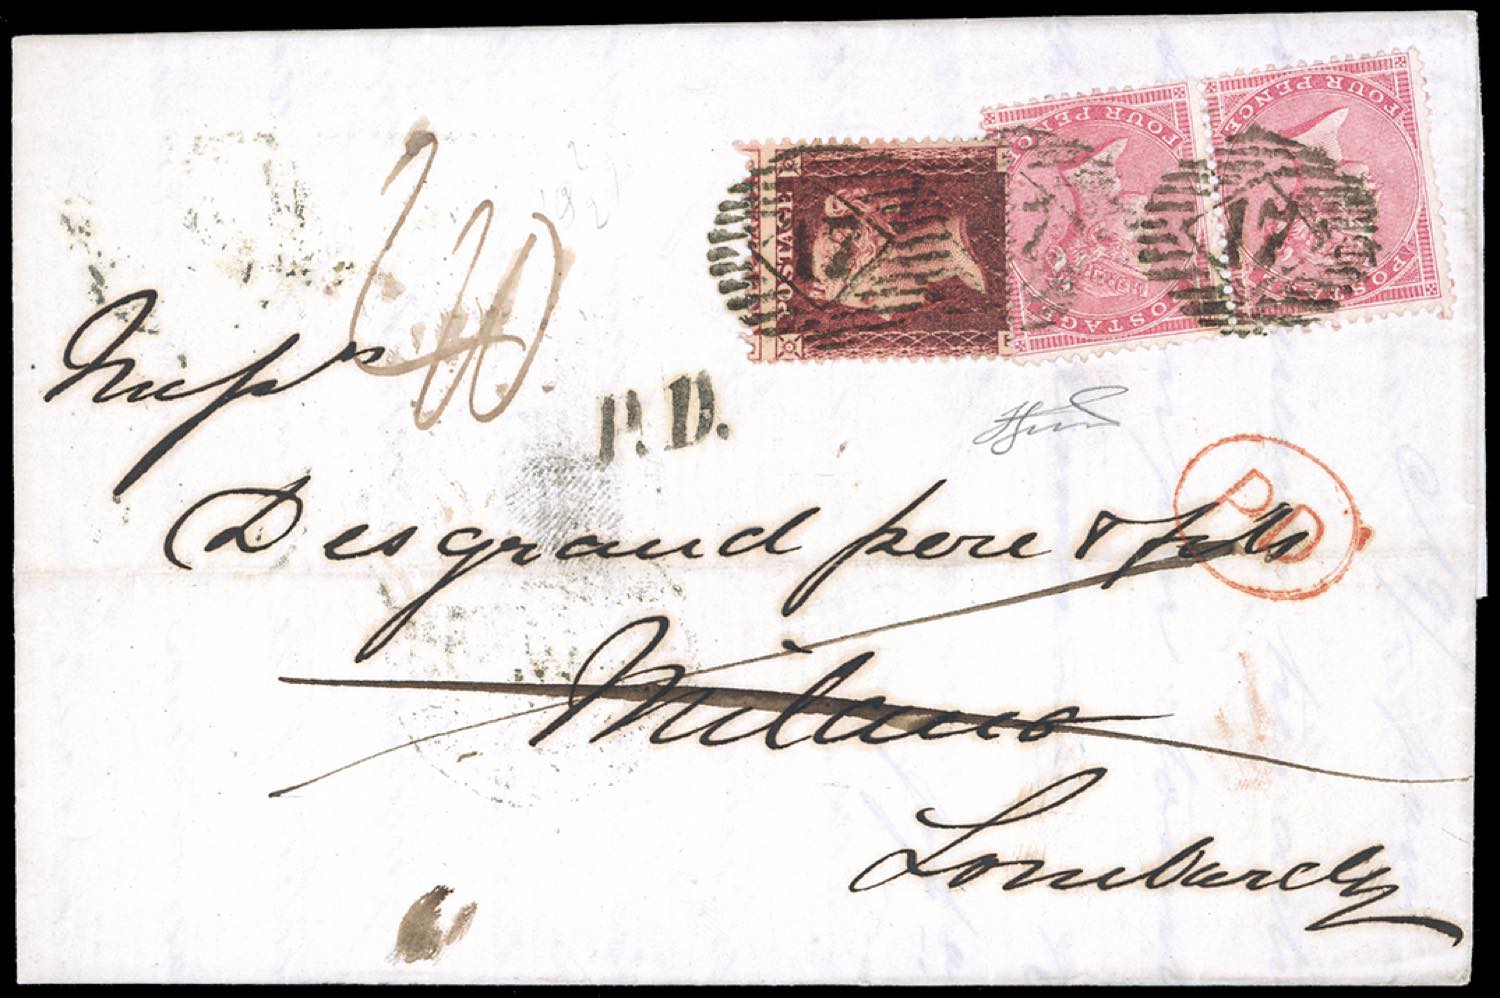 FOUR PENCE
POSTAGE
FOUR PENCE
POSTAGE
POSTAGE
17
Messrs
P.D.
PD
Desgrand pere & fils
Milano
Lombardy